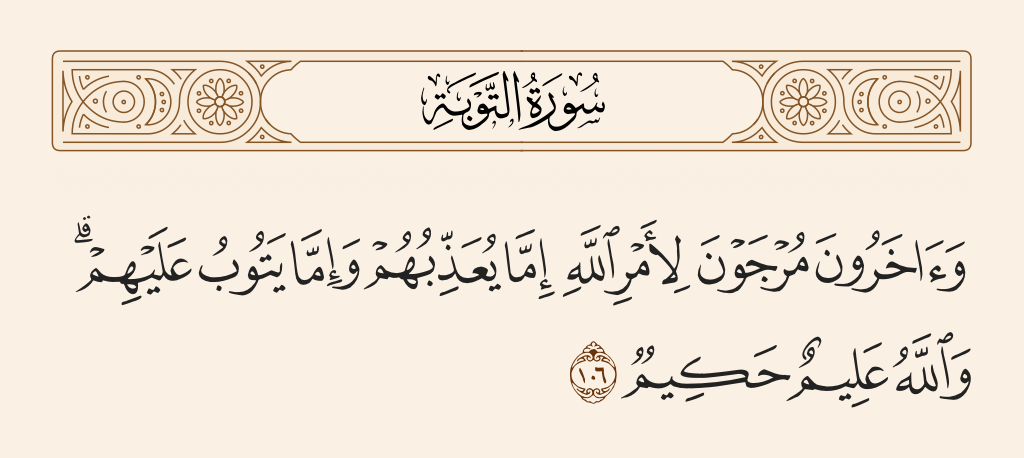 سُورَةُ التَّوْبَةِ
وَءَاخَرُونَ مُرْجَوْنَ لِأَمْرِ ٱللَّهِ إِمَّا يُعَذِّبُهُمْ وَإِمَّا يَتُوبُ عَلَيْهِمْ ۗ
وَٱللَّهُ عَلِيمٌ حَكِيمٌ ١٠٦